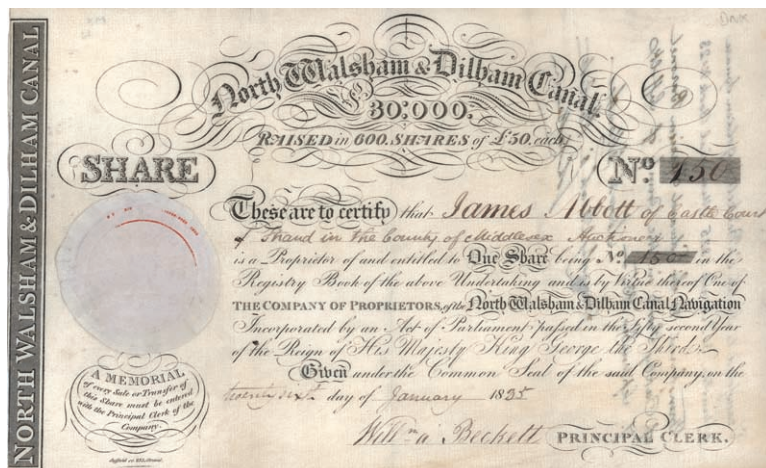 NORTH WALSHAM & DILHAM CANAL
North Walsham & Dilham Canal.
£30,000.
RAISED in 600. SHARES of £50. each
SHARE
No. 150
These are to certify that James Abbott of Castle Court
Strand in the County of Middlesex Auctioneer
is a Proprietor of and entitled to One Share being No. 150 in the
Registry Book of the above Undertaking and is by Virtue thereof One of
THE COMPANY OF PROPRIETORS, of the North Walsham & Dilham Canal Navigation
Incorporated by an Act of Parliament passed in the Fifty second Year
of the Reign of His Majesty King George the Third.
Given under the Common Seal of the said Company, on the
twenty sixth day of January 1835
Willm a' Beckett PRINCIPAL CLERK.
A MEMORIAL
of every Sale or Transfer of
this Share must be entered
with the Principal Clerk of the
Company.